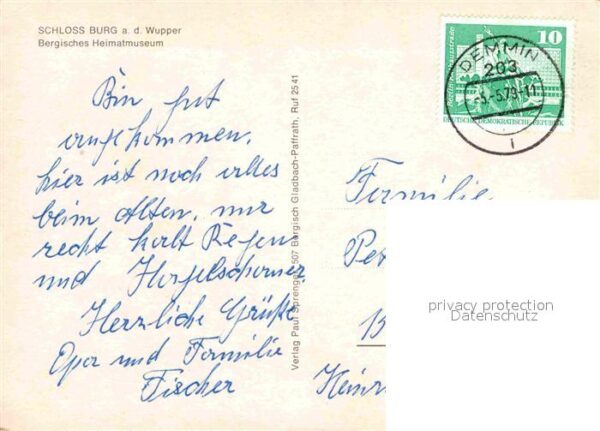 SCHLOSS BURG a. d. Wupper
Bergisches Heimatmuseum
Bin gut
angekommen,
hier ist noch alles
beim Alten, nur
recht kalt Regen
und Hagelschauer
Herzliche Grüße
Opa und Familie
Fischer
Verlag Paul Sprenger, 507 Bergisch Gladbach-Paffrath, Ruf 2541
10
DEUTSCHE DEMOKRATISCHE REPUBLIK
DEMMIN
203
Familie
Pe
Heinr
privacy protection
Datenschutz